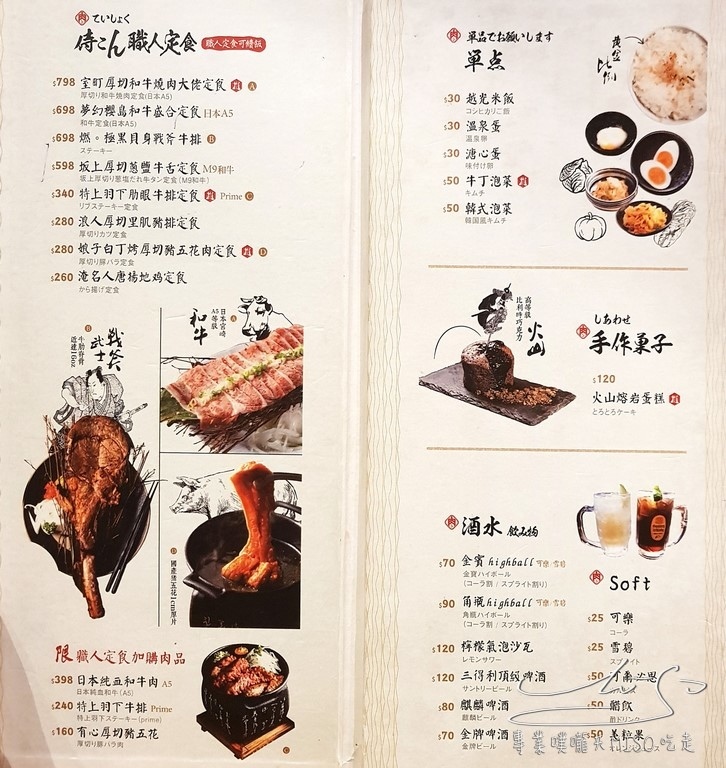 肉 ていしょく
侍こん 職人定食 職人定食可續飯
$798 室町厚切和牛燒肉大佬定食 A
厚切り和牛焼肉定食(日本A5)
$698 夢幻櫻島和牛盛合定食 日本A5
和牛定食(日本A5)
$698 燃。極黑貝身戰斧牛排 B
ステーキー
$598 坂上厚切蔥鹽牛舌定食 M9和牛
坂上厚切り葱塩だれ牛タン定食(M9和牛)
$340 特上羽下肋眼牛排定食 Prime C
リブステーキー定食
$280 浪人厚切里肌豬排定食
厚切りカツ定食
$280 娘子白丁烤厚切豬五花肉定食 D
厚切り豚バラ定食
$260 淹名人唐揚地鸡定食
から揚げ定食
B
戰斧武士
牛肋脊骨
近達16oz
A
日本宮崎
A5等級
和牛
D
國產豬五花1cm厚片
限 職人定食加購肉品
$398 日本純血和牛肉 A5
日本純血和牛(A5)
$240 特上羽下牛排 Prime
特上羽下ステーキー(prime)
$160 有心厚切豬五花
厚切り豚バラ肉
C
肉 單品でお願いします
單点
黃金比例
$30 越光米飯
コシヒカリご飯
$30 溫泉蛋
温泉卵
$30 溏心蛋
味付け卵
$50 牛丁泡菜
キムチ
$50 韓式泡菜
韓国風キムチ
高等級
比利時巧克力
火山
肉 しあわせ
手作菓子
$120
火山熔岩蛋糕
とろとろケーキ
肉 酒水 飲み物
$70 金賓highball 可樂·雪碧
金賓ハイボール
(コーラ割 / スプライト割り)
$90 角瓶highball 可樂·雪碧
角瓶ハイボール
(コーラ割 / スプライト割り)
$120 檸檬氣泡沙瓦
レモンサワー
$120 三得利頂級啤酒
サントリービール
$80 麒麟啤酒
麒麟ビール
$70 金牌啤酒
金牌ビール
肉 Soft
$25 可樂
コーラ
$25 雪碧
スプライト
$50
$50 醋飲
酢ドリンク
$50
專業噗嚨共NISO吃走